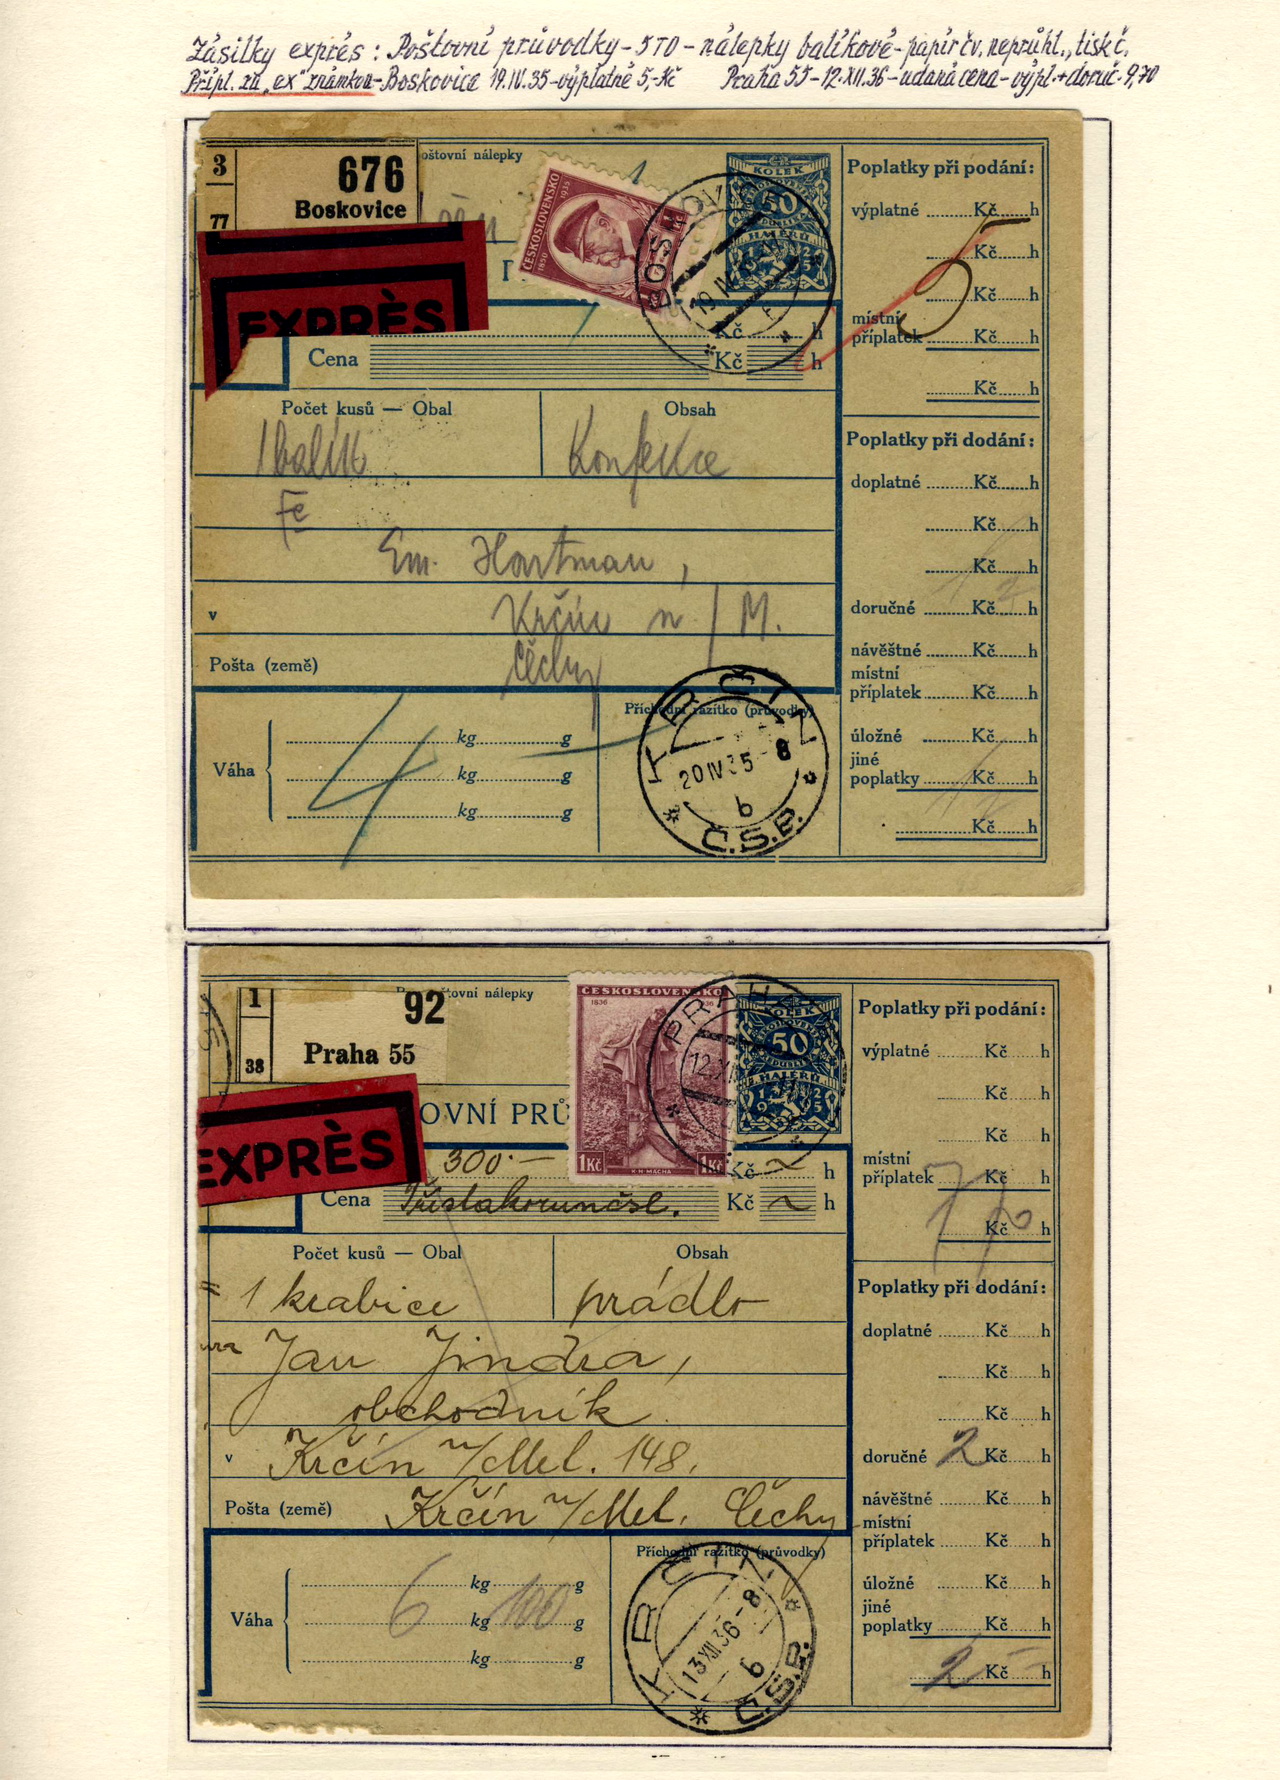 Zásilky exprés: Poštovní průvodky - 5TO - nálepky balíkové - papír čv, neprůhl., tisk č.
Přípl. za "ex" známkou - Boskovice 19.IV.35 - výplatné 5,- Kč
Praha 55 - 12.XII.36 - udaná cena - výpl. + doruč. 9,70
3
77
676
Boskovice
oštovní nálepky
EXPRÈS
ČESKOSLOVENSKO
1850
1935
KOLEK
50
HALÉŘŮ
1925
BOSKOVICE
19 IV 35
Kč h
Cena Kč h
Počet kusů — Obal
Obsah
1 balík
Konfekce
Fe
Em. Hartman,
v Krčín n/M.
Pošta (země) Čechy
Váha
kg g
kg g
kg g
4
Příchodní razítko (průvodky)
KRČÍN
20 IV 35 - 8
b
Č.S.P.
Poplatky při podání:
výplatné Kč h
Kč h
Kč h
5
místní
příplatek Kč h
Kč h
Poplatky při dodání:
doplatné Kč h
Kč h
Kč h
doručné Kč h
návěštné Kč h
místní
příplatek Kč h
úložné Kč h
jiné
poplatky Kč h
Kč h
1
38
92
Praha 55
tovní nálepky
EXPRÈS
OVNÍ PRŮ
ČESKOSLOVENSKO
1836
1936
1Kč
K.H. MÁCHA
1Kč
KOLEK
50
HALÉŘŮ
1925
PRAHA
12.XII
300·— Kč h
Cena Třistakorunčsl. Kč h
Počet kusů — Obal
Obsah
1 krabice
prádlo
Jan Jindra,
obchodník
v Krčín n/Met. 148.
Pošta (země) Krčín n/Met. Čechy
Váha
kg g
6 kg 100 g
kg g
Příchodní razítko (průvodky)
KRČÍN
13 XII 36 - 8
b
Č.S.P.
Poplatky při podání:
výplatné Kč h
Kč h
Kč h
místní
příplatek Kč h
Kč h
7 70
Poplatky při dodání:
doplatné Kč h
Kč h
Kč h
doručné 2 Kč h
návěštné Kč h
místní
příplatek Kč h
úložné Kč h
jiné
poplatky Kč h
2 Kč — h